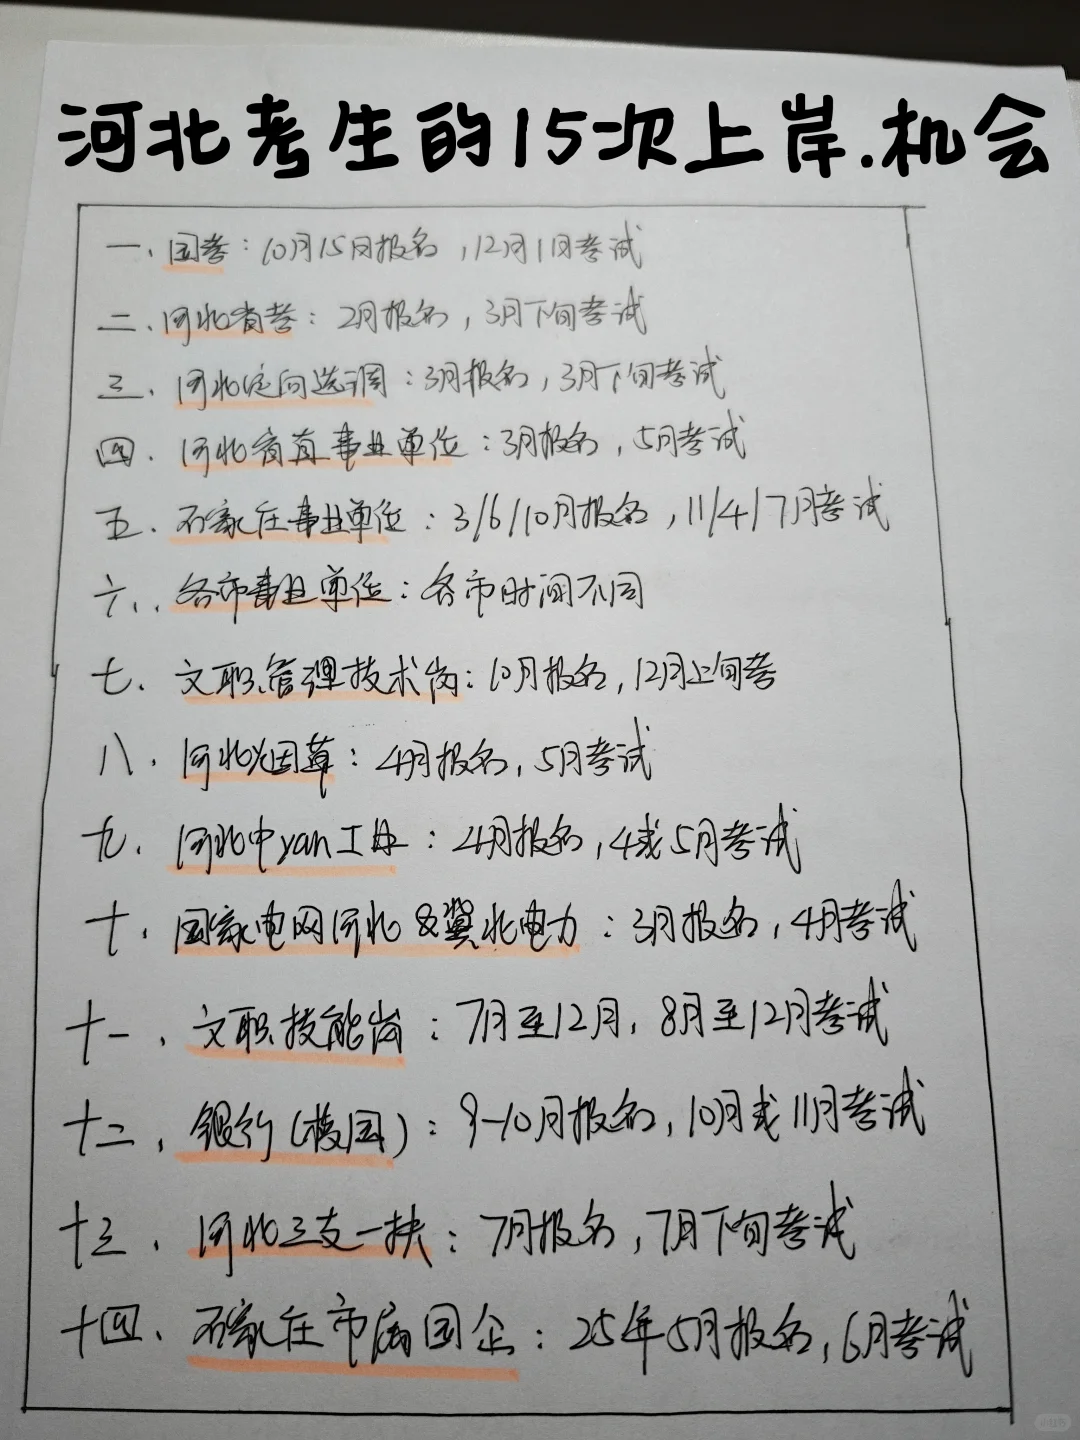 河北考生的15次上岸.机会
一、国考：10月15日报名，12月1日考试
二、河北省考：2月报名，3月下旬考试
三、河北定向选调：3月报名，3月下旬考试
四、河北省直事业单位：3月报名，5月考试
五、石家庄事业单位：3/6/10月报名，11/4/7月考试
六、各市事业单位：各市时间不同
七、文职管理技术岗：10月报名，12月上旬考
八、河北烟草：4月报名，5月考试
九、河北中yan工业：4月报名，4或5月考试
十、国家电网河北&冀北电力：3月报名，4月考试
十一、文职技能岗：7月至12月，8月至12月考试
十二、银行(校园)：9-10月报名，10月或11月考试
十三、河北三支一扶：7月报名，7月下旬考试
十四、石家庄市属国企：25年5月报名，6月考试
小红书